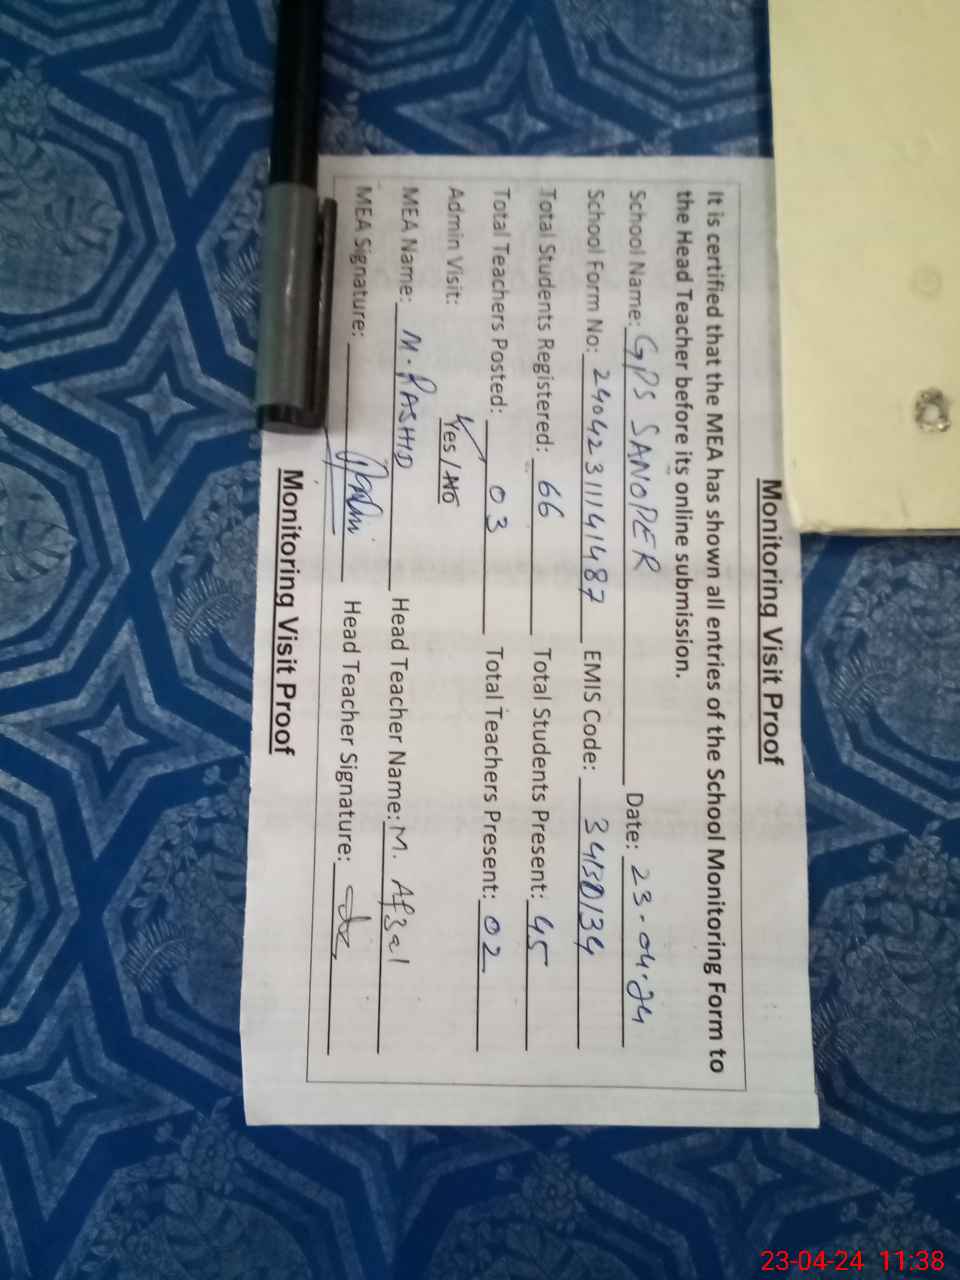 Monitoring Visit Proof
It is certified that the MEA has shown all entries of the School Monitoring Form to
the Head Teacher before its online submission.
School Name: GPS SANOPER Date: 23-04-24
School Form No: 24042311141487 EMIS Code: 34150134
Total Students Registered: 66 Total Students Present: 45
Total Teachers Posted: 03 Total Teachers Present: 02
Admin Visit: Yes / No
MEA Name: M. RASHID Head Teacher Name: M. Afzal
MEA Signature: Head Teacher Signature:
Monitoring Visit Proof
23-04-24 11:38